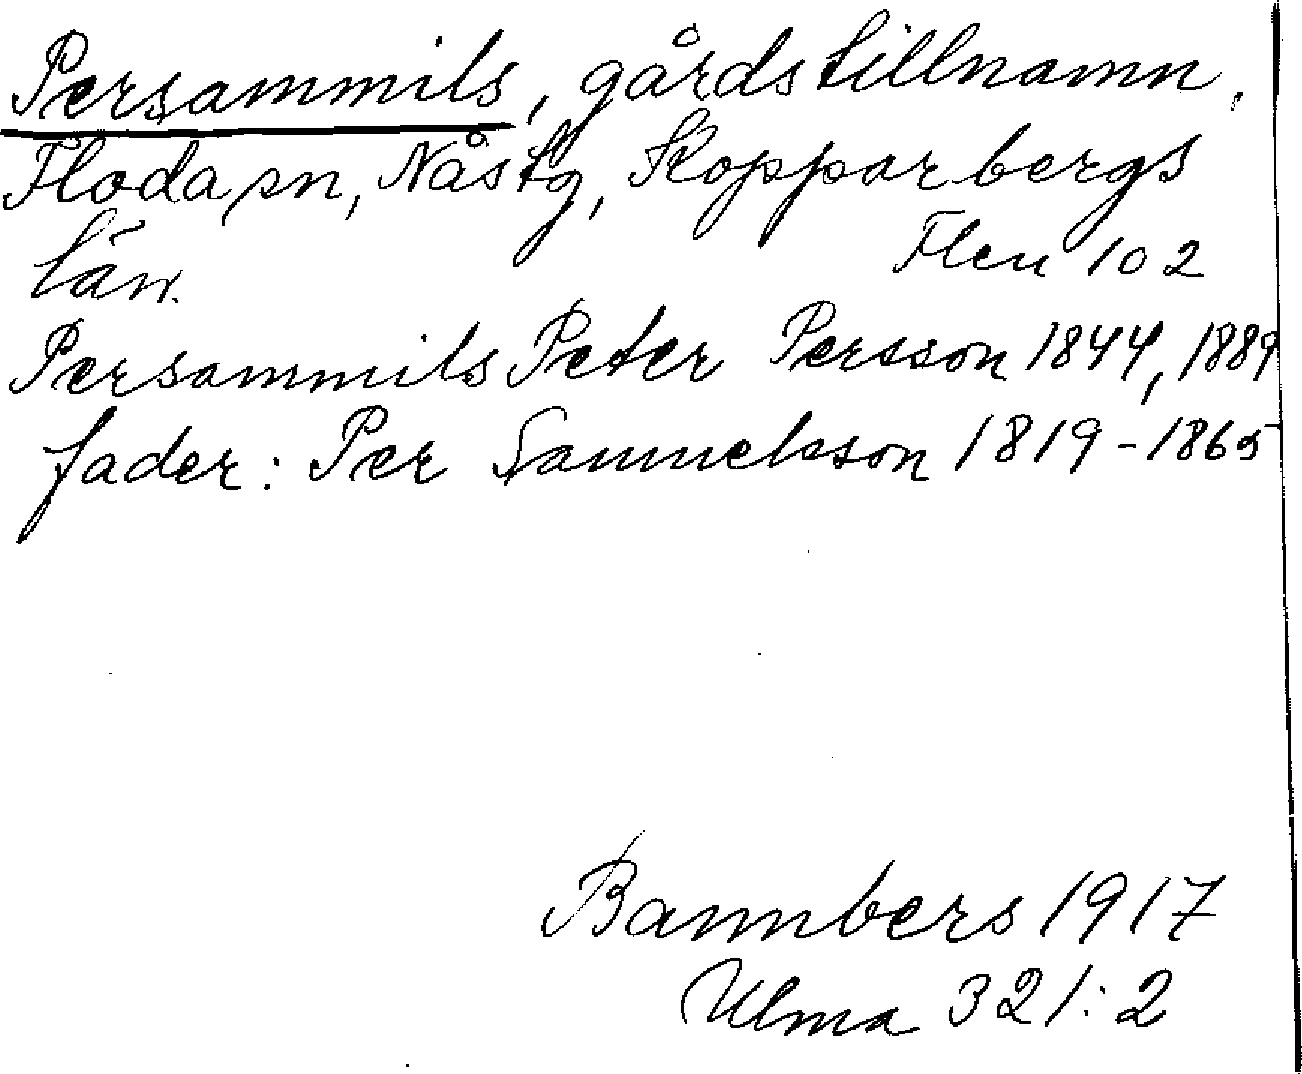 Persammils, gårdstillnamn,
Floda sn, Nås tg, Kopparbergs
län.
Flen 102
Persammils Peter Persson 1844, 1889
fader: Per Samuelsson 1819-1865
Bannbers 1917
Ulma 321:2